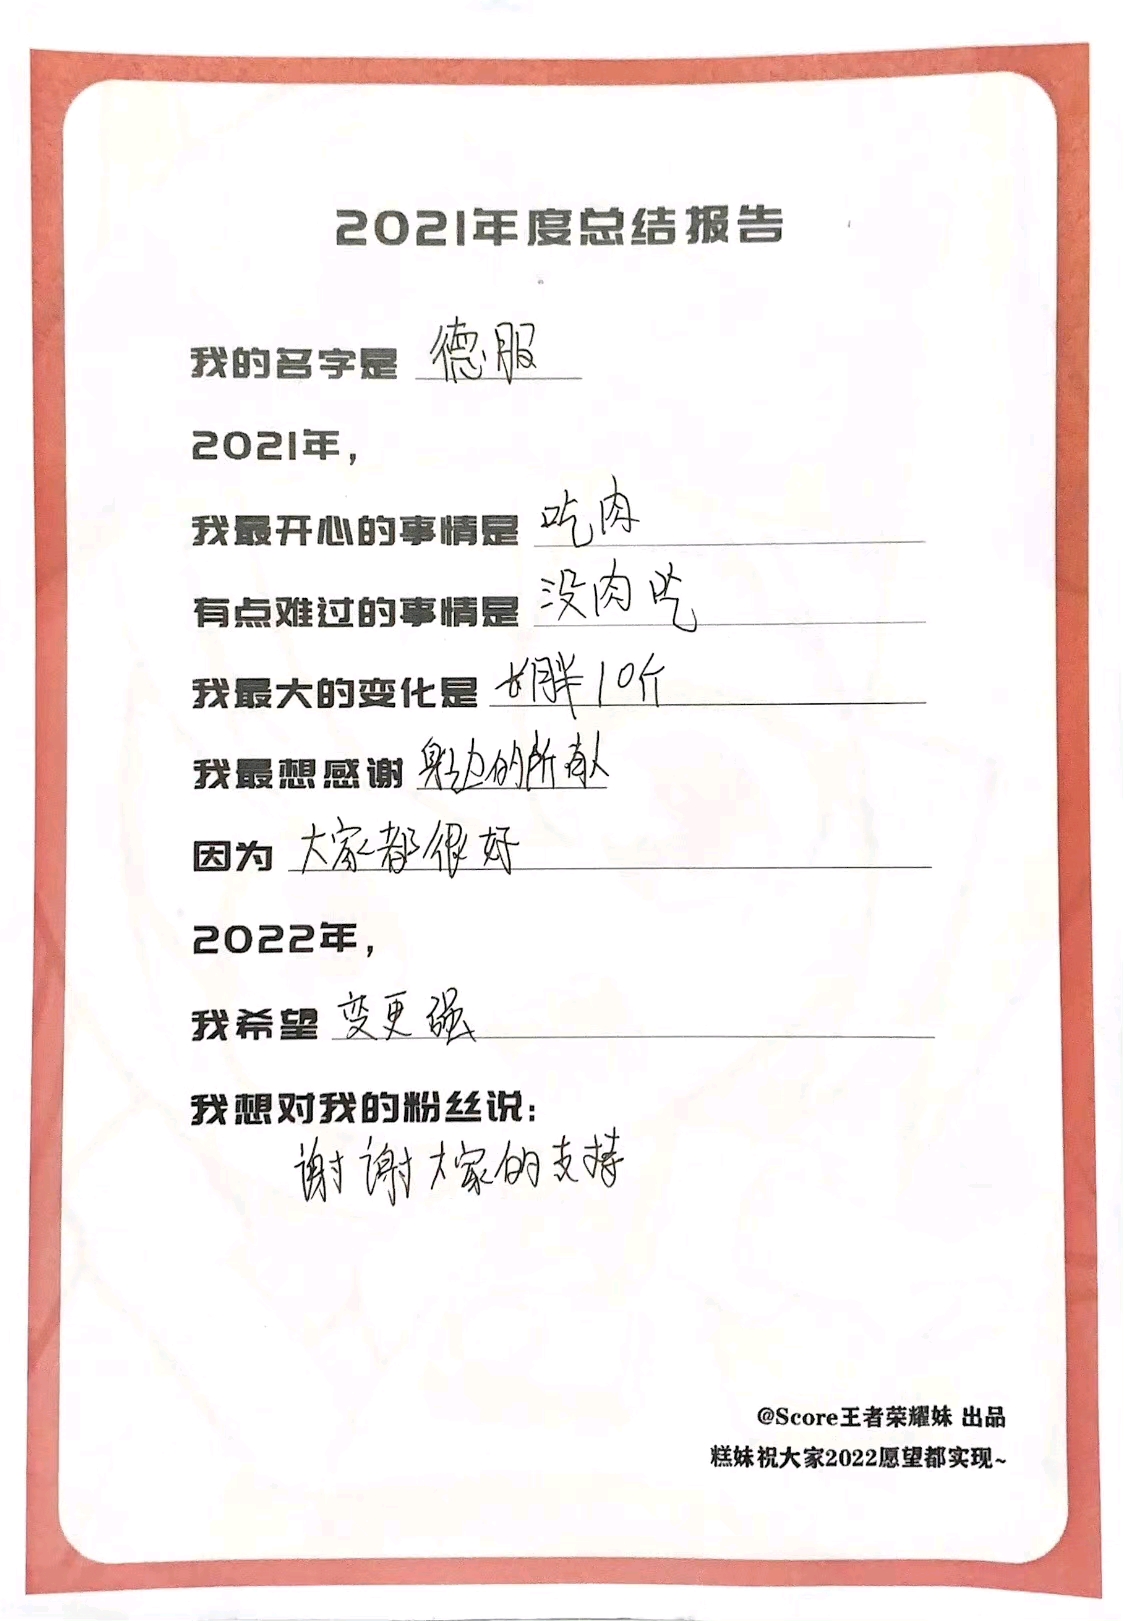 2021年度总结报告
我的名字是 德服
2021年，
我最开心的事情是 吃肉
有点难过的事情是 没肉吃
我最大的变化是 长胖10斤
我最想感谢 身边的所有人
因为 大家都很好
2022年，
我希望 变更强
我想对我的粉丝说：
谢谢大家的支持
@Score王者荣耀妹 出品
糕妹祝大家2022愿望都实现~